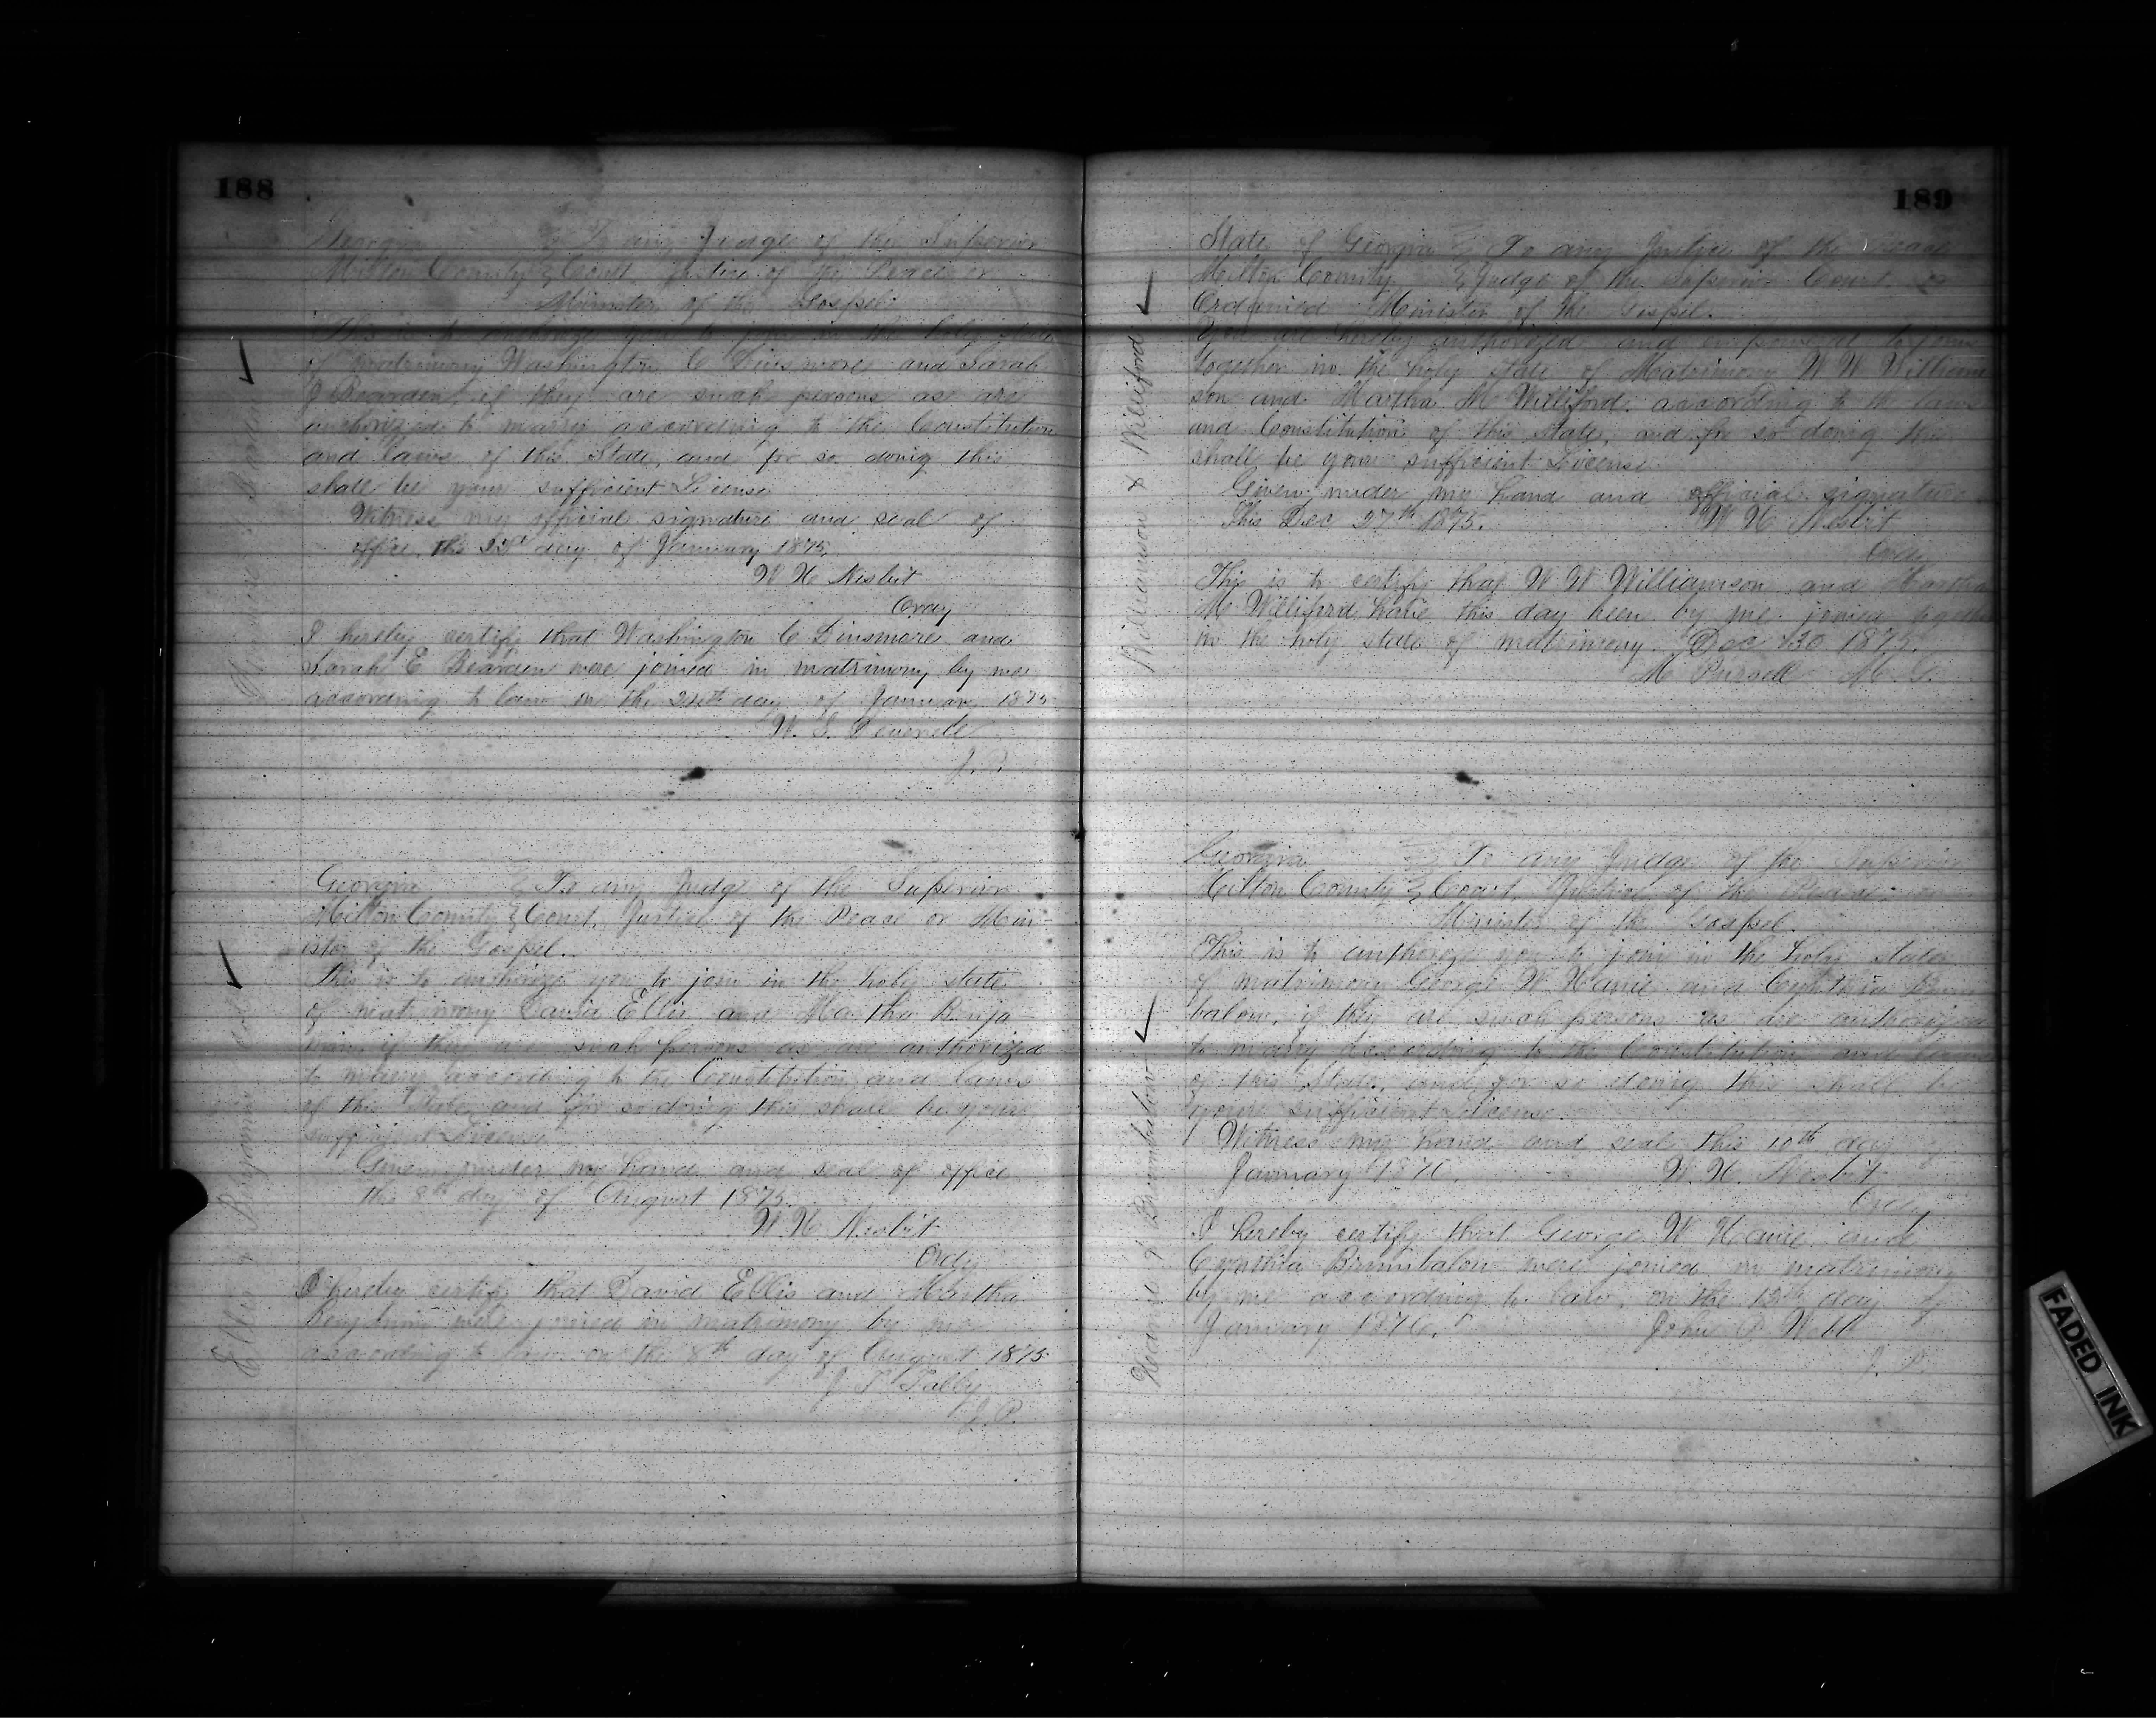 188
Georgia } To any Judge of the Superior
Milton County } Court Justice of the Peace or
Minister of the Gospel.
This is to authorize you to join in the holy state
of matrimony Washington C Dinsmore and Sarah
J Bearden, if they are such persons as are
authorized to marry according to the Constitution
and laws of this State, and for so doing this
shall be your sufficient License
Witness my official signature and seal of
office, this day of January 1875.
W H Nesbit
Ordy
I hereby certify that Washington C Dinsmore and
Sarah E Bearden were joined in matrimony by me
according to law on the 24th day of January 1875
W. S.
J. P.
Georgia } To any Judge of the Superior
Milton County } Court, Justice of the Peace or Min-
ister of the Gospel.
This is to authorize you to join in the holy state
of matrimony David Ellis and Martha Benja-
min if they are such persons as are authorized
to marry according to the Constitution and laws
of this State, and for so doing this shall be your
sufficient License
Given under my hand and seal of office
this 8th day of August 1875.
W. H Nesbit
Ordy
I hereby certify that David Ellis and Martha
Benjamin were joined in matrimony by me
according to law on the 8th day of August 1875
J. P.
Ellis & Benjamin
189
State of Georgia } To any Justice of the Peace
Milton County } Judge of the Superior Court or
Ordained Minister of the Gospel.
You are hereby authorized and empowered to join
together in the holy state of Matrimony W W William
son and Martha M Williford. according to the laws
and Constitution of this State, and for so doing this
shall be your sufficient License.
Given under my hand and official signature
This Dec 27th 1875. W H Nesbit
Ordy
This is to certify that W W Williamson and Martha
M Williford have this day been by me joined together
in the holy state of matrimony. Dec 30 1875.
M Pursell M. G.
Williamson & Williford
Georgia } To any Judge of the Superior
Milton County } Court, Justice of the Peace or
Minister of the Gospel.
This is to authorize you to join in the holy state
of matrimony George W Hanie and Cynthia Brum
balow, if they are such persons as are authorized
to marry according to the Constitution and laws
of this State, and for so doing this shall be
your sufficient License.
Witness my hand and seal this 10th day of
January 1876. W. H. Nesbit
Ordy
I hereby certify that George W Hanie and
Cynthia Brumbalow were joined in matrimony
by me according to law, on the 13th day of
January 1876. John P Webb
J. P.
Hanie & Brumbelow
FADED INK